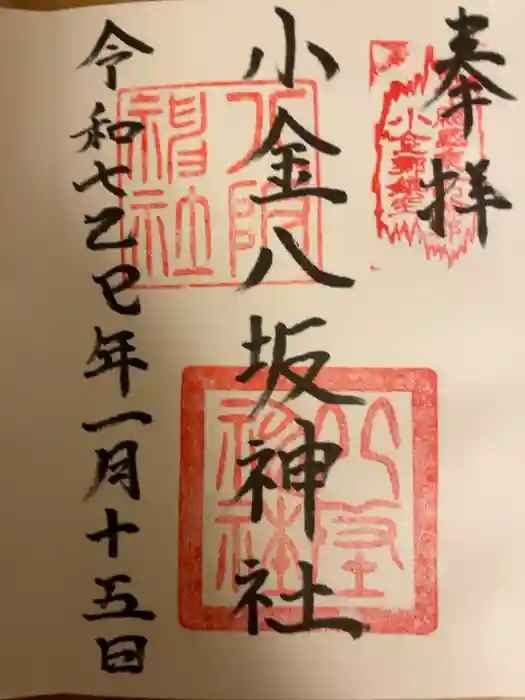 奉拝
小金八坂神社
八阪神社
令和七乙巳年一月十五日